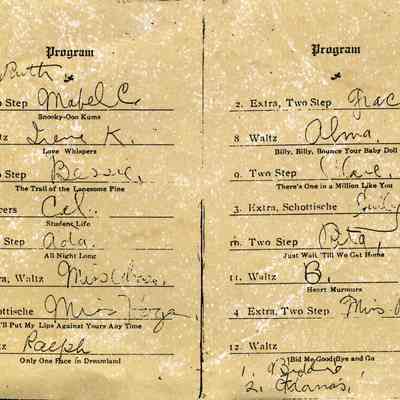 Program
Ruth
Step Mabel C.
Snooky-Ooo Kums
tz Irene K.
Love Whispers
Step Bessie.
The Trail of the Lonesome Pine
cers Cel.
Student Life
Step Ada.
All Night Long
ra, Waltz Miss
ottische Miss
I'll Put My Lips Against Yours Any Time
tz Ralph
Only One Face in Dreamland
Program
2. Extra, Two Step Grac
8 Waltz Alma,
Billy, Billy, Bounce Your Baby Doll
9. Two Step
There's One in a Million Like You
3. Extra, Schottische
10. Two Step Rita,
Just Wait 'Till We Get Home
11. Waltz B.
Heart Murmurs
4 Extra, Two Step Miss
12. Waltz
Bid Me Good-Bye and Go
1.
2.